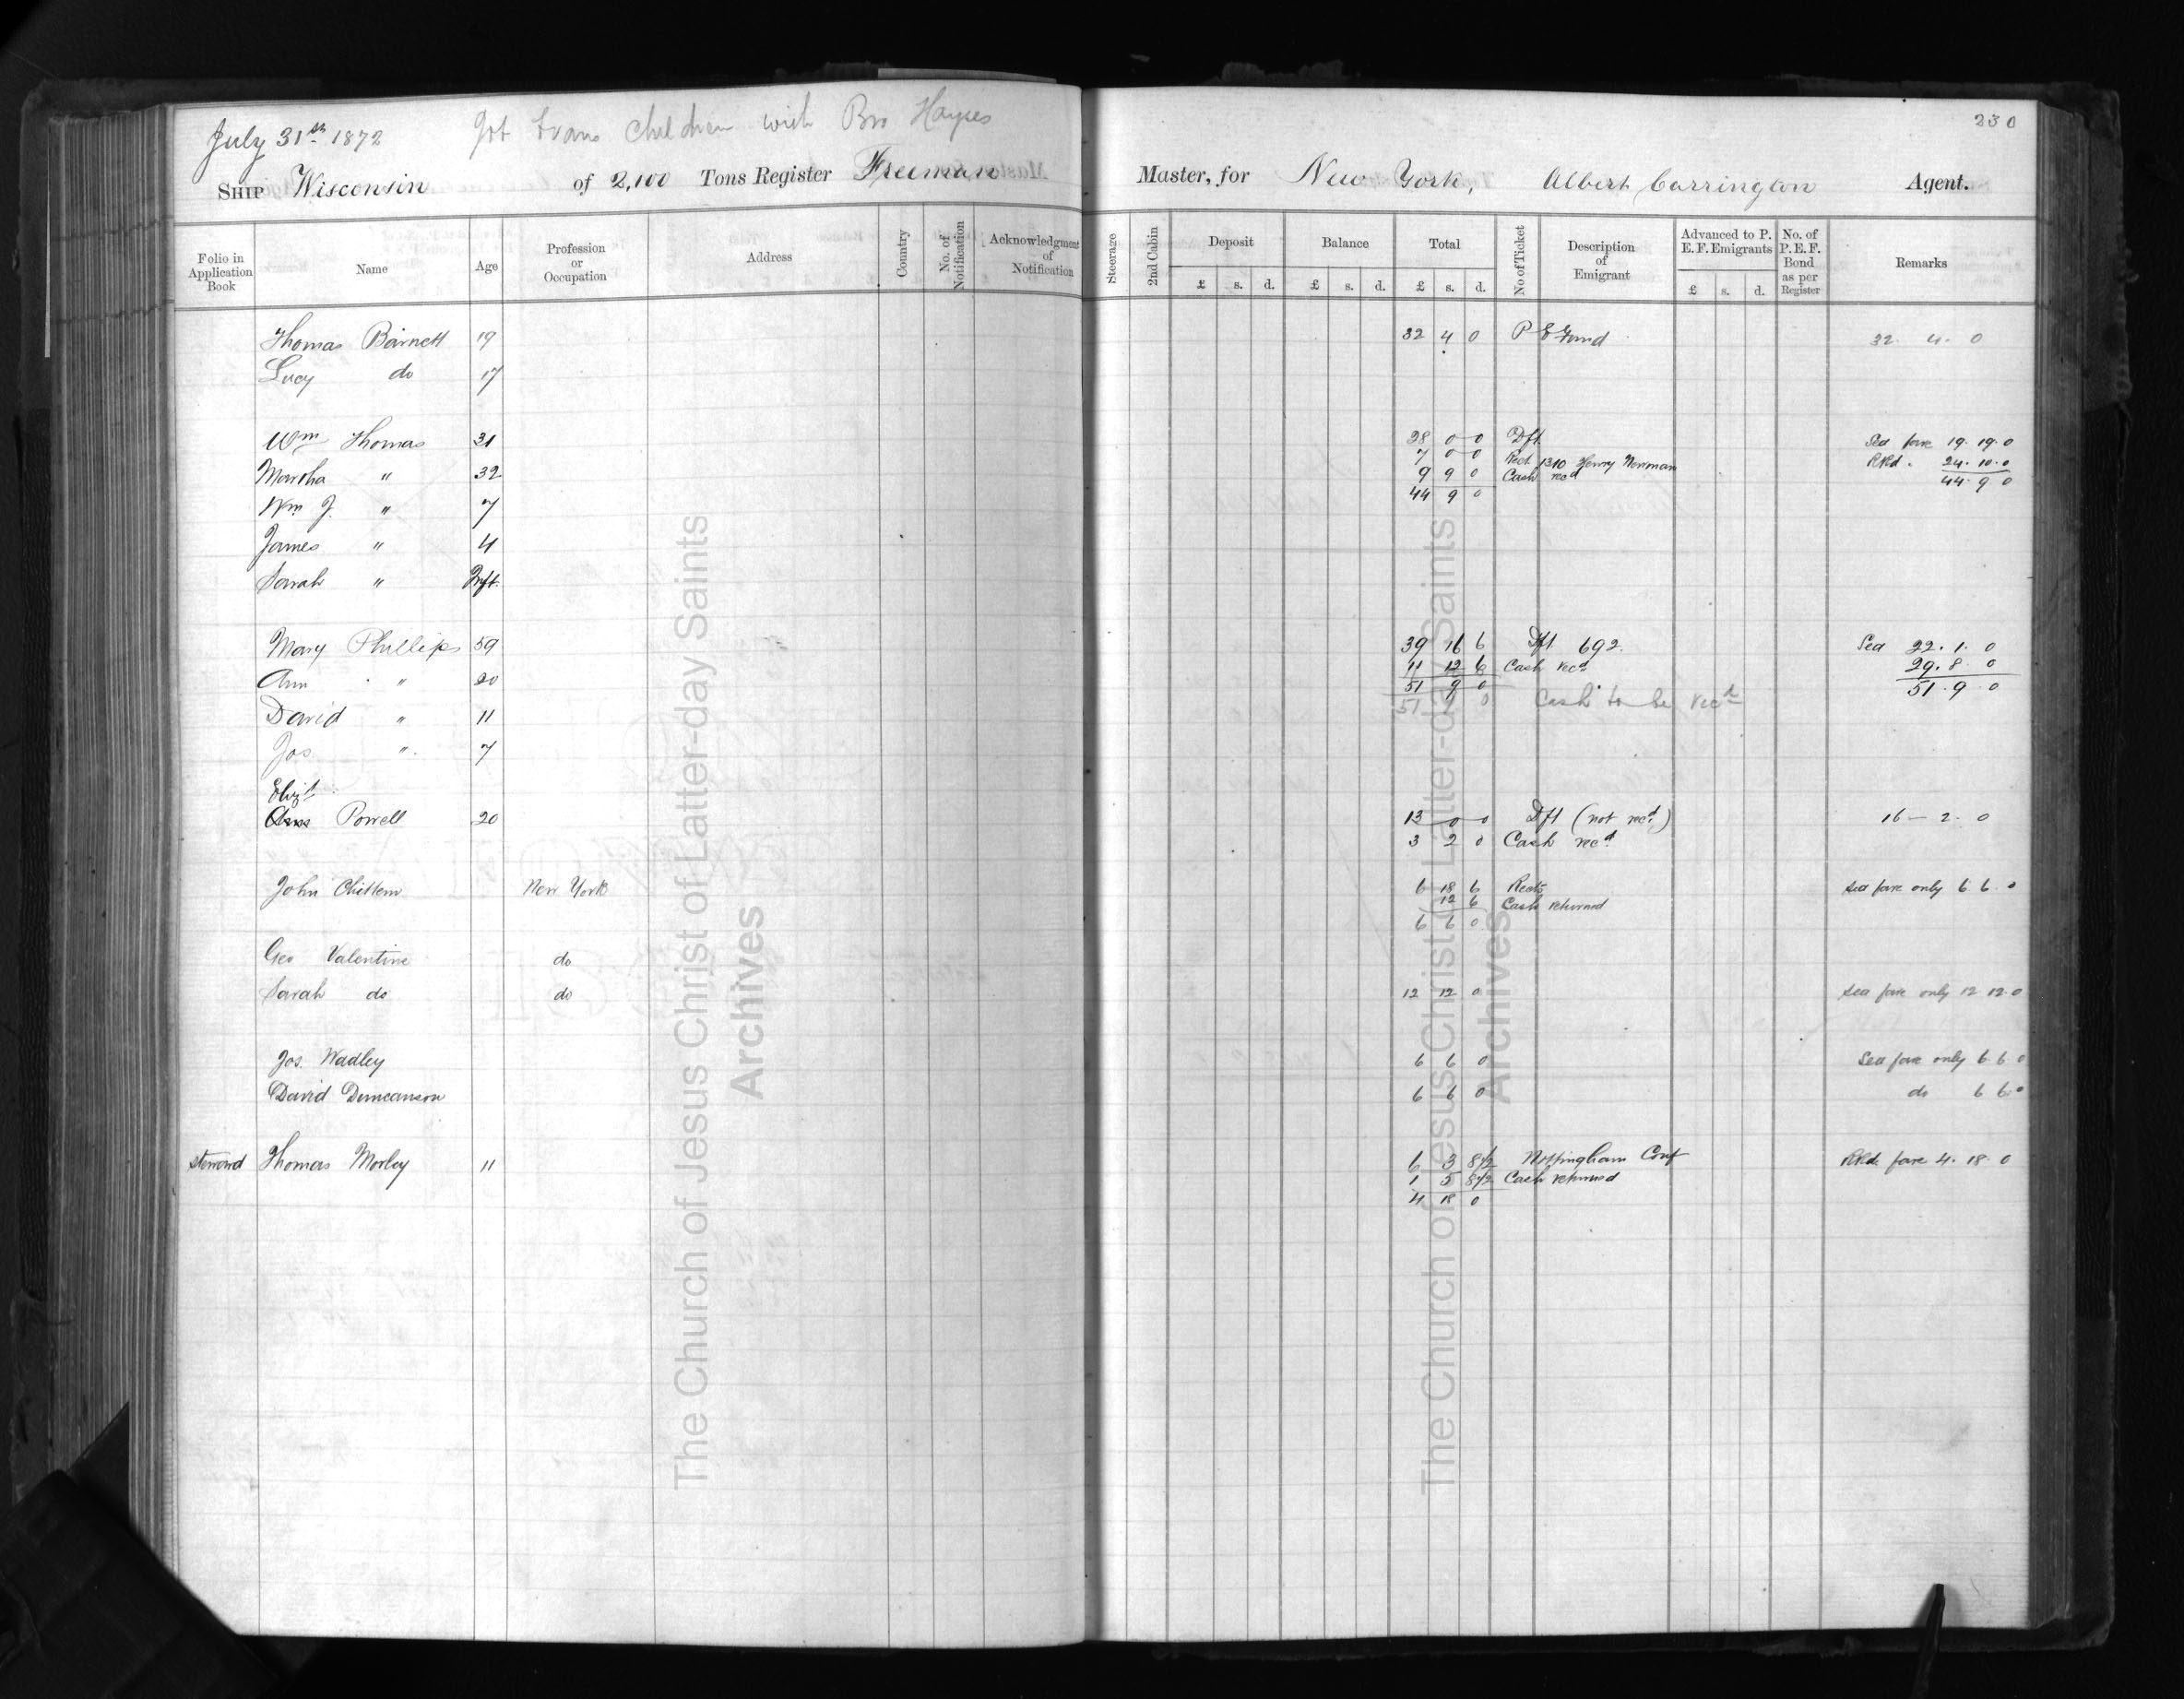 July 31st 1872 Jos Evans Children with Bro Haynes
230
SHIP Wisconsin of 2,100 Tons Register Freeman Master, for New York, Albert Carrington Agent.
Folio in Application Book Name Age Profession or Occupation Address Country No. of Notification Acknowledgment of Notification Steerage 2nd Cabin Deposit Balance Total No of Ticket Description of Emigrant Advanced to P. E. F. Emigrants No. of P. E. F. Bond as per Register Remarks
£ s. d. £ s. d. £ s. d. £ s. d.
Thomas Barnett 19 32 4 0 P E Fund 32. 4. 0
Lucy do 17
Wm Thomas 31 28 0 0 Dft. Sea fare 19. 19. 0
7 0 0 Rect 1310 Henry Newman RRd. 24. 10. 0
Martha " 32 9 9 0 Cash recd 44. 9 0
Wm J. " 7 44 9 0
James " 4
Sarah " Inft.
Mary Phillips 59 39 16 6 Dft. 692. Sea 22. 1. 0
11 12 6 Cash recd 29. 8. 0
Ann " 20 51 9 0 51. 9. 0
51 9 0 Cash to be recd
David " 11
Jos. " 7
Elizth
Ann Powell 20 13 0 0 Dft (not recd.) 16 - 2. 0
3 2 0 Cash recd
John Chittem New York 6 18 6 Rects Sea fare only 6 6. 0
12 6 Cash returned
6 6 0
Geo Valentine do
Sarah do do 12 12 0 Sea fare only 12 12. 0
Jos. Wadley 6 6 0 Sea fare only 6. 6. 0
David Duncanson 6 6 0 do 6 6. 0
steward Thomas Morley 11 6 3 8 1/2 Nottingham Conf RRd. fare 4. 18. 0
1 5 8 1/2 Cash returned
4 18 0
The Church of Jesus Christ of Latter-day Saints
Archives
The Church of Jesus Christ of Latter-day Saints
Archives